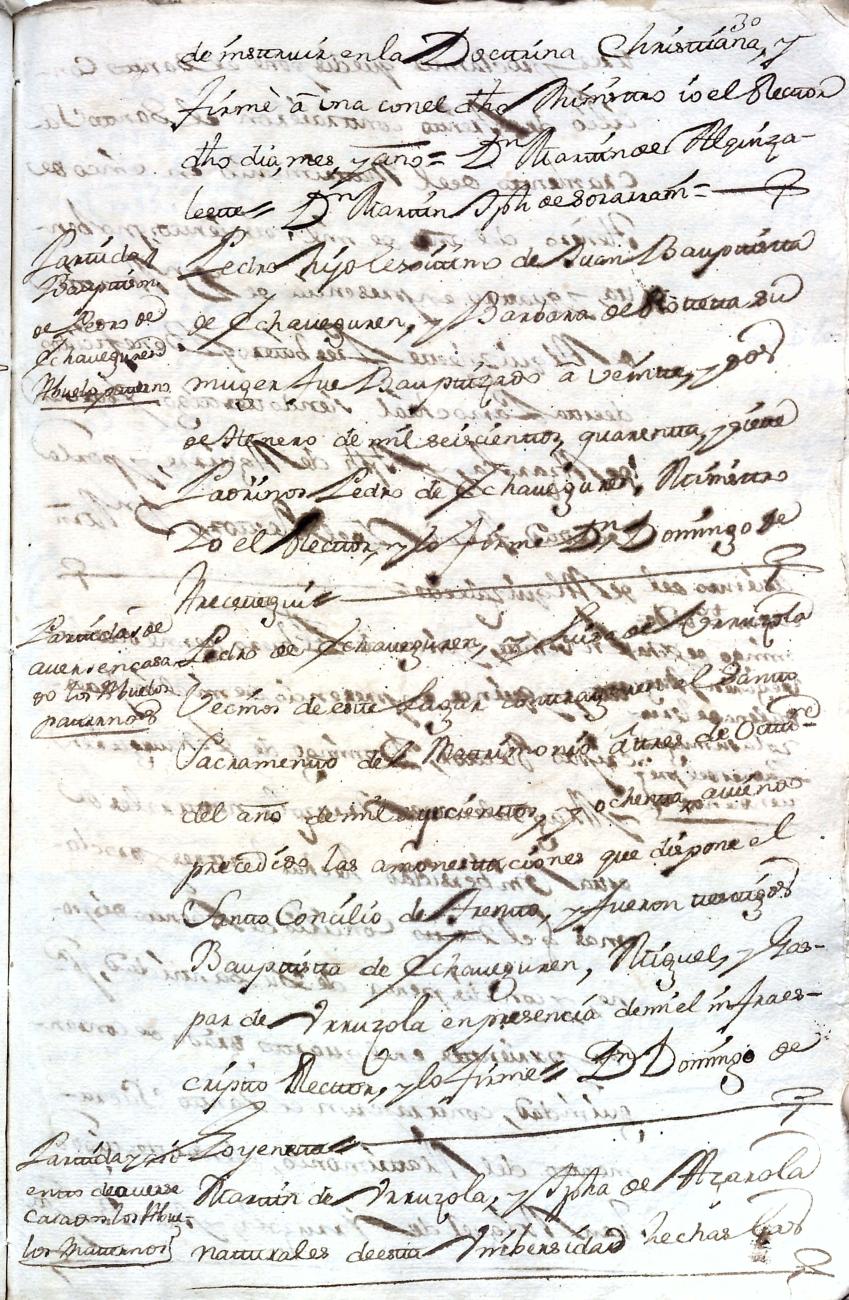 30
de instruir en la Doctrina Christiana, y
firmè â una con el dho Ministro io el Rector
dho dia, mes, y año = Dn Martin de Alquiza-
lette = Dn Martin Jph de Sorarrain =
Partida
Bauptism
de Pedro de
Echaveguren
Abuelo paterno
Pedro hijo lexitimo de Juan Bauptista
de Echaveguren, y Barbara de Rotetta su
muger fue Bauptizado â veinte, y dos
de Henero de mil seiscientos, quarenta, y siete
Padrinos Pedro de Echaveguren, Ministro
Io el Rector, y lo firmè Dn Domingo de
Partidas de
aversen casa
do los Abuelos
paternos
Pedro de Echaveguren, y Luisa de Urruzola
Vecinos de este Lugar contrageron el Santo
Sacramento del Matrimonio â tres de Octure
del año de mil seiscientos, y ochenta, aviendo
precedido las amonestaciones que dispone el
Santo Concilio de Trento, y fueron testigos
Bauptista de Echaveguren, Miguel, y Gas-
par de Urruzola en presencia de mi el infraes-
cripto Rector, y lo firmè = Dn Domingo de
Loyenetta =
Partida
de averse
casado los Abue-
los Maternos
Martin de Urruzola, y Jpha de Atzarola
natturales de esta Unibersidad hechas las